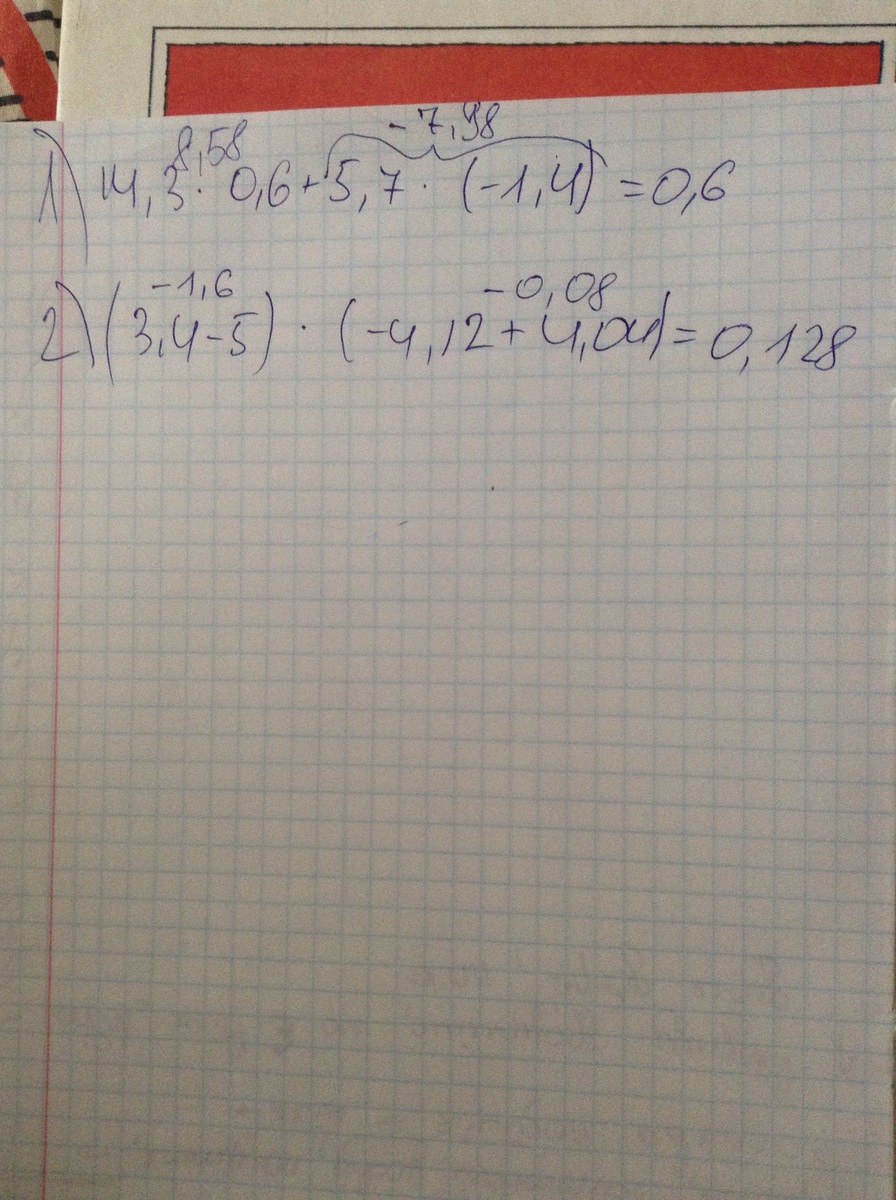 8,58 -7,98
1) 14,3 · 0,6 + 5,7 · (-1,4) = 0,6
-1,6 -0,08
2) (3,4-5) · (-4,12 + 4,04) = 0,128